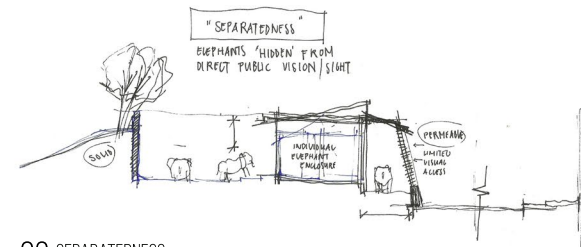 "SEPARATEDNESS"
ELEPHANTS 'HIDDEN' FROM
DIRECT PUBLIC VISION/SIGHT
SOLID
INDIVIDUAL
ELEPHANT
ENCLOSURE
PERMEABLE
LIMITED
VISUAL
ACCESS
SEPARATEDNESS